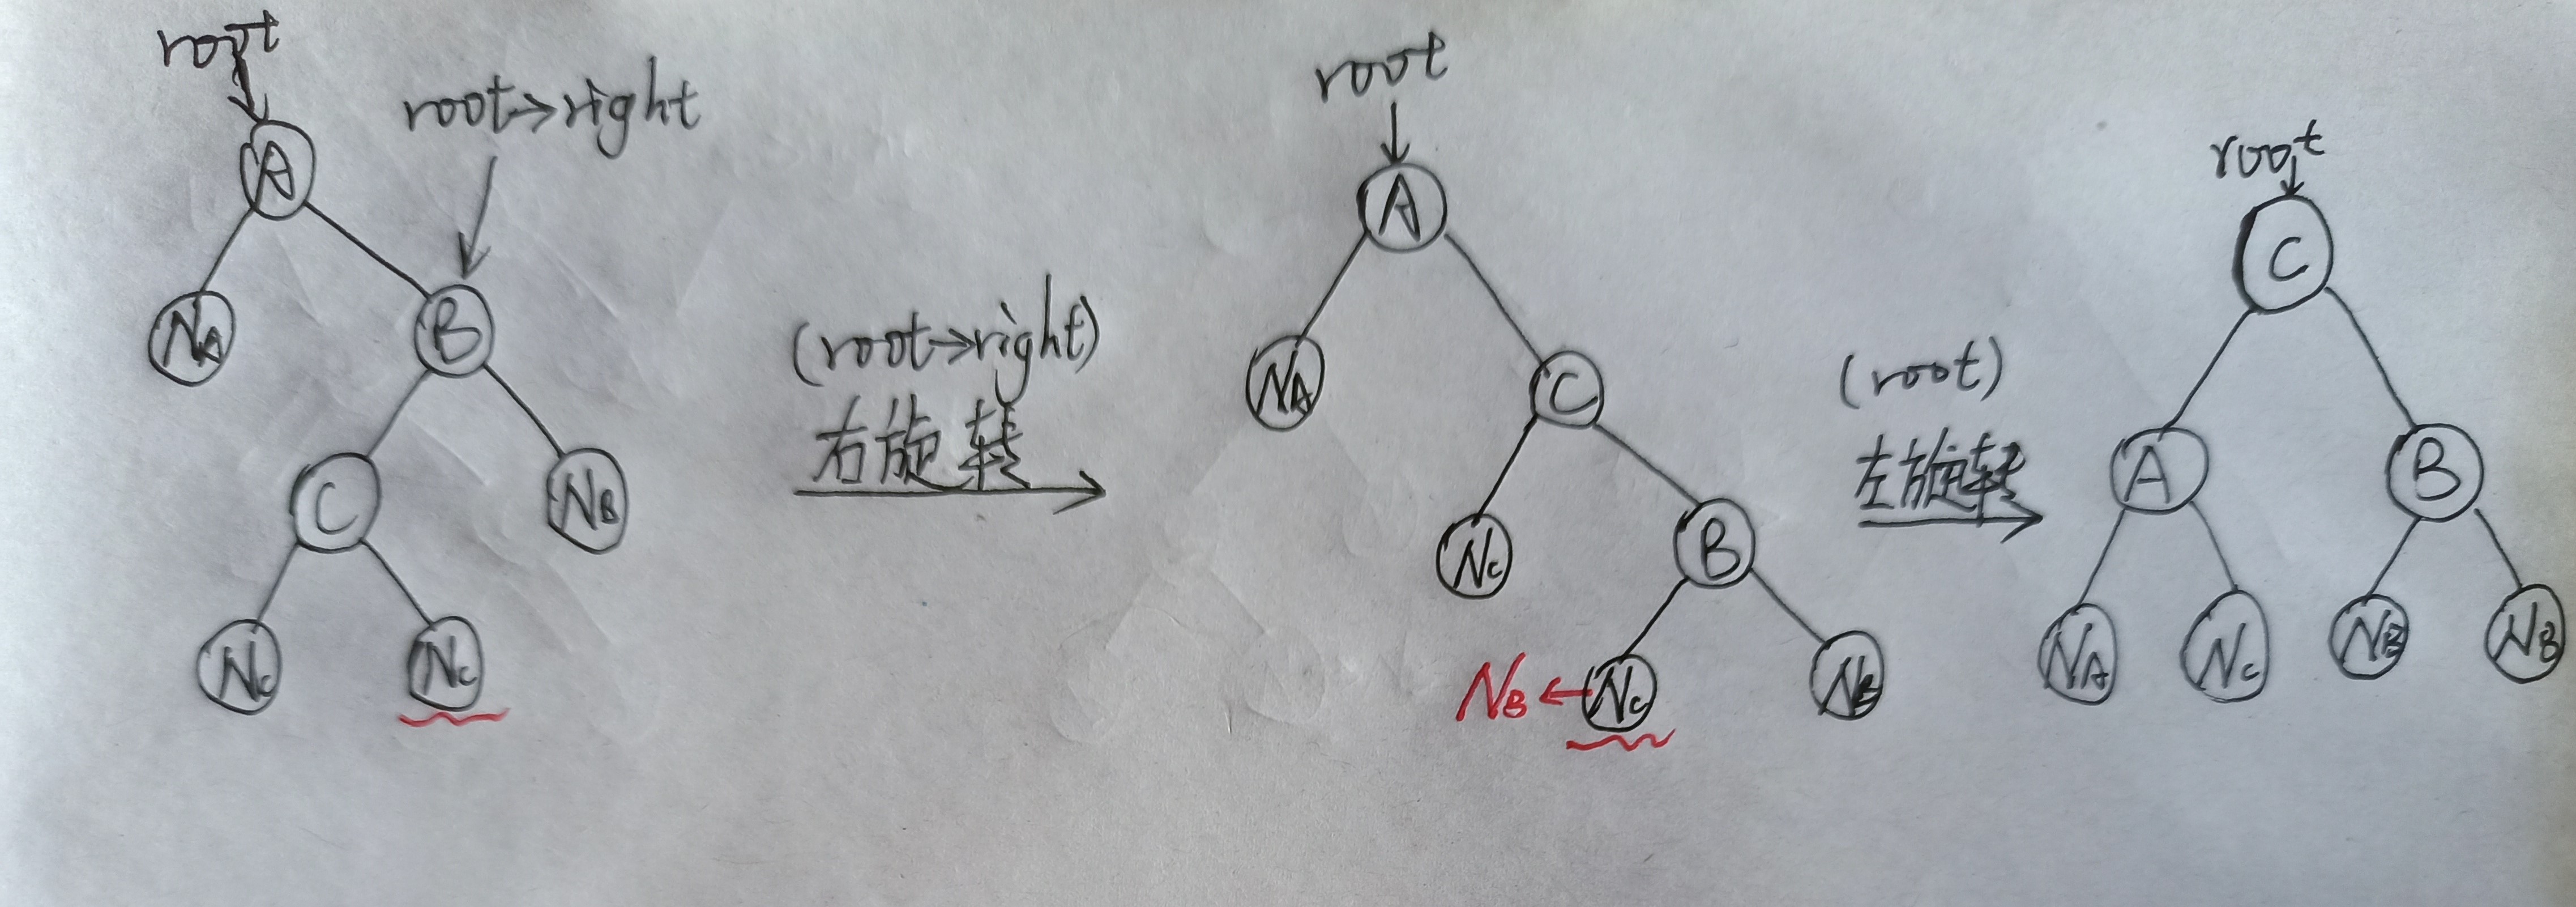 root
root->right
A
NA
B
C
NB
Nc
Nc
(root->right)
右旋转
root
A
NA
C
Nc
B
NB ← Nc
NB
(root)
左旋转
root
C
A
B
NA
Nc
NB
NB